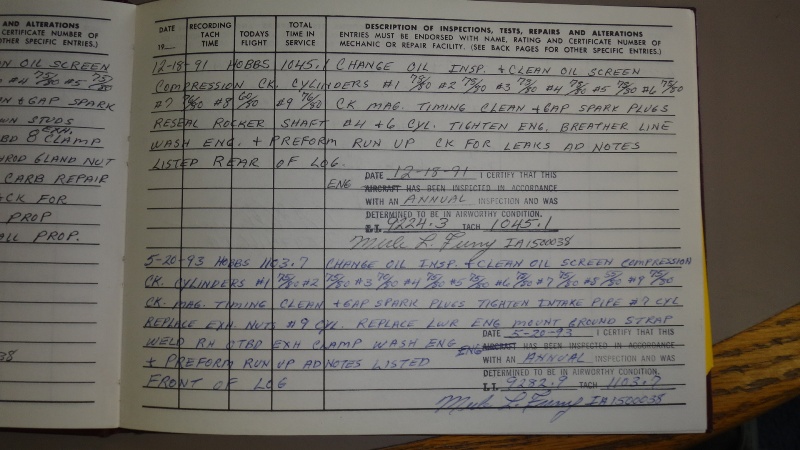 AND ALTERATIONS
CERTIFICATE NUMBER OF
OTHER SPECIFIC ENTRIES.)
OIL SCREEN
#5 75/80
+ GAP SPARK
STUDS
EXH.
CLAMP
GLAND NUT
CARB REPAIR
FOR
PROP
PROP.
DATE
19
RECORDING TACH TIME
TODAYS FLIGHT
TOTAL TIME IN SERVICE
DESCRIPTION OF INSPECTIONS, TESTS, REPAIRS AND ALTERATIONS
ENTRIES MUST BE ENDORSED WITH NAME, RATING AND CERTIFICATE NUMBER OF
MECHANIC OR REPAIR FACILITY. (SEE BACK PAGES FOR OTHER SPECIFIC ENTRIES.)
12-18-91 HOBBS 1045.1 CHANGE OIL INSP. + CLEAN OIL SCREEN
COMPRESSION CK. CYLINDERS #1 #2 #3 #4 #5 #6
#7 #8 60/80 #9 76/80 CK MAG. TIMING CLEAN + GAP SPARK PLUGS
RESEAL ROCKER SHAFT #4 + 6 CYL. TIGHTEN ENG. BREATHER LINE
WASH ENG. + PREFORM RUN UP CK FOR LEAKS AD NOTES
LISTED REAR OF LOG.
DATE 12-18-91 I CERTIFY THAT THIS
ENG AIRCRAFT HAS BEEN INSPECTED IN ACCORDANCE
WITH AN ANNUAL INSPECTION AND WAS
DETERMINED TO BE IN AIRWORTHY CONDITION.
T.T. 9224.3 TACH 1045.1
IA1500038
5-20-93 HOBBS 1103.7 CHANGE OIL INSP. + CLEAN OIL SCREEN COMPRESSION
CK. CYLINDERS #1 #2 #3 #4 #5 #6 #7 #8 #9
CK. MAG. TIMING CLEAN + GAP SPARK PLUGS TIGHTEN INTAKE PIPE #9 CYL
REPLACE EXH. NUTS #9 CYL. REPLACE LWR ENG MOUNT GROUND STRAP
WELD RH OTBD EXH CLAMP WASH ENG
+ PREFORM RUN UP AD NOTES LISTED
FRONT OF LOG
DATE 5-20-93 I CERTIFY THAT THIS
ENG AIRCRAFT HAS BEEN INSPECTED IN ACCORDANCE
WITH AN ANNUAL INSPECTION AND WAS
DETERMINED TO BE IN AIRWORTHY CONDITION.
T.T. 9282.9 TACH 1103.7
IA1500038